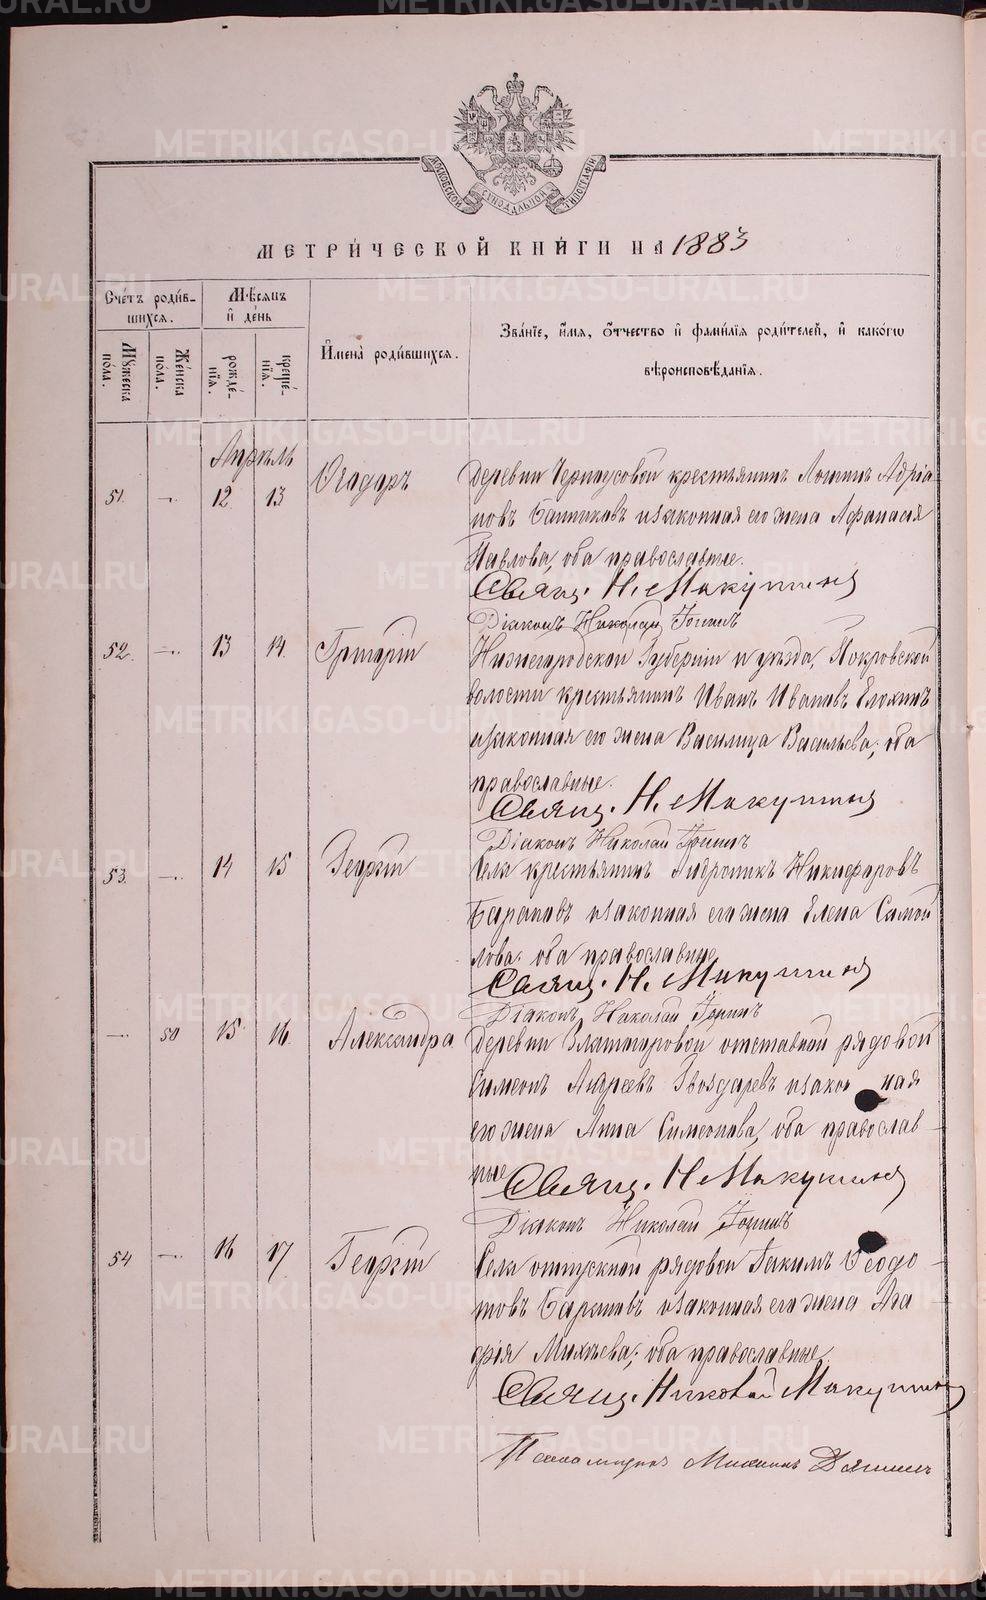 METRIKI.GASO-URAL.RU
МОСКОВСКОЙ СѴНОДАЛЬНОЙ ТИПОГРАФІИ
МЕТРИ́ЧЕСКОЙ КНИ́ГИ НА 1883
Сче́тъ роди́в-
шихся.
Мѣсяцъ
и҆ де́нь
Му́жеска по́ла.
Же́нска по́ла.
рожде́-
нїя.
креще́-
нїя.
И҆мена̀ роди́вшихся.
Зва́нїе, и҆́мя, ѻ҆́тчество и҆ фами́лїя роди́телей, и҆ како́гѡ
вѣроисповѣ́данїя.
Апрѣль
51. — 12 13 Ѳеодоръ Деревни Черноусовой крестьянинъ Логинъ Адріа-
новъ Банниковъ изаконная его жена Афанасія
Павлова, оба православные.
Свящ. Н. Макушинъ
Діаконъ Николай Горинъ
52. — 13 14. Григорій Нижегородской Губерніи и уѣзда, Покровской
волости крестьянинъ Иванъ Ивановъ Елохинъ
изаконная его жена Василиса Васильева, оба
православные.
Свящ. Н. Макушинъ
Діаконъ Николай Горинъ
53. — 14 15 Георгій Села крестьянинъ Андроникъ Никифоровъ
Барановъ изаконная его жена Елена Самой
лова. оба православные
Свящ. Н. Макушинъ
Діаконъ Николай Горинъ
— 50 15 16. Александра Деревни Златогоровой отставной рядовой
Симеонъ Андреевъ Гвоздаревъ изаконная
его жена Анна Симеонова, оба православ-
ные
Свящ. Н Макушинъ
Діаконъ Николай Горинъ
54 — 16 17 Георгій Села отпускной рядовой Іакимъ Ѳеодо-
товъ изаконная его жена Ага
фія Михѣева, оба православные.
Свящ. Николай Макушинъ
Пономарь